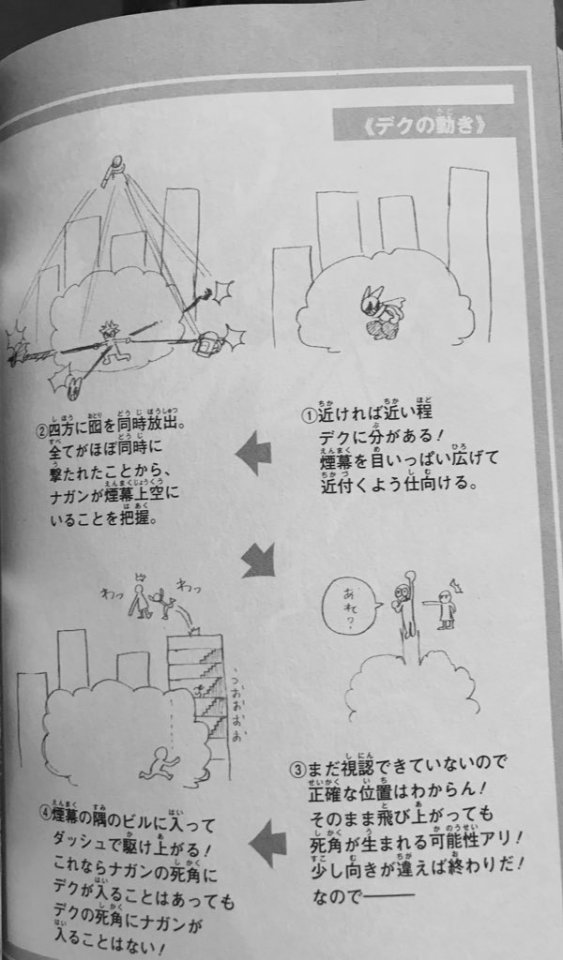 《デクの動き》
①近ければ近い程
デクに分がある!
煙幕を目いっぱい広げて
近付くよう仕向ける。
②四方に囮を同時放出。
全てがほぼ同時に
撃たれたことから、
ナガンが煙幕上空に
いることを把握。
あれ?
③まだ視認できていないので
正確な位置はわからん!
そのまま飛び上がっても
死角が生まれる可能性アリ!
少し向きが違えば終わりだ!
なので――
わっ
わっ
うおおおおお
④煙幕の隅のビルに入って
ダッシュで駆け上がる!
これならナガンの死角に
デクが入ることはあっても
デクの死角にナガンが
入ることはない!